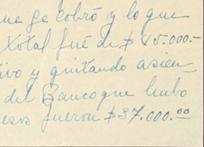 ue se cobró y lo que
total fué de $ 45.000.-
ivo y quitando asien-
del Banco que hubo
esos fueron $37.000.00